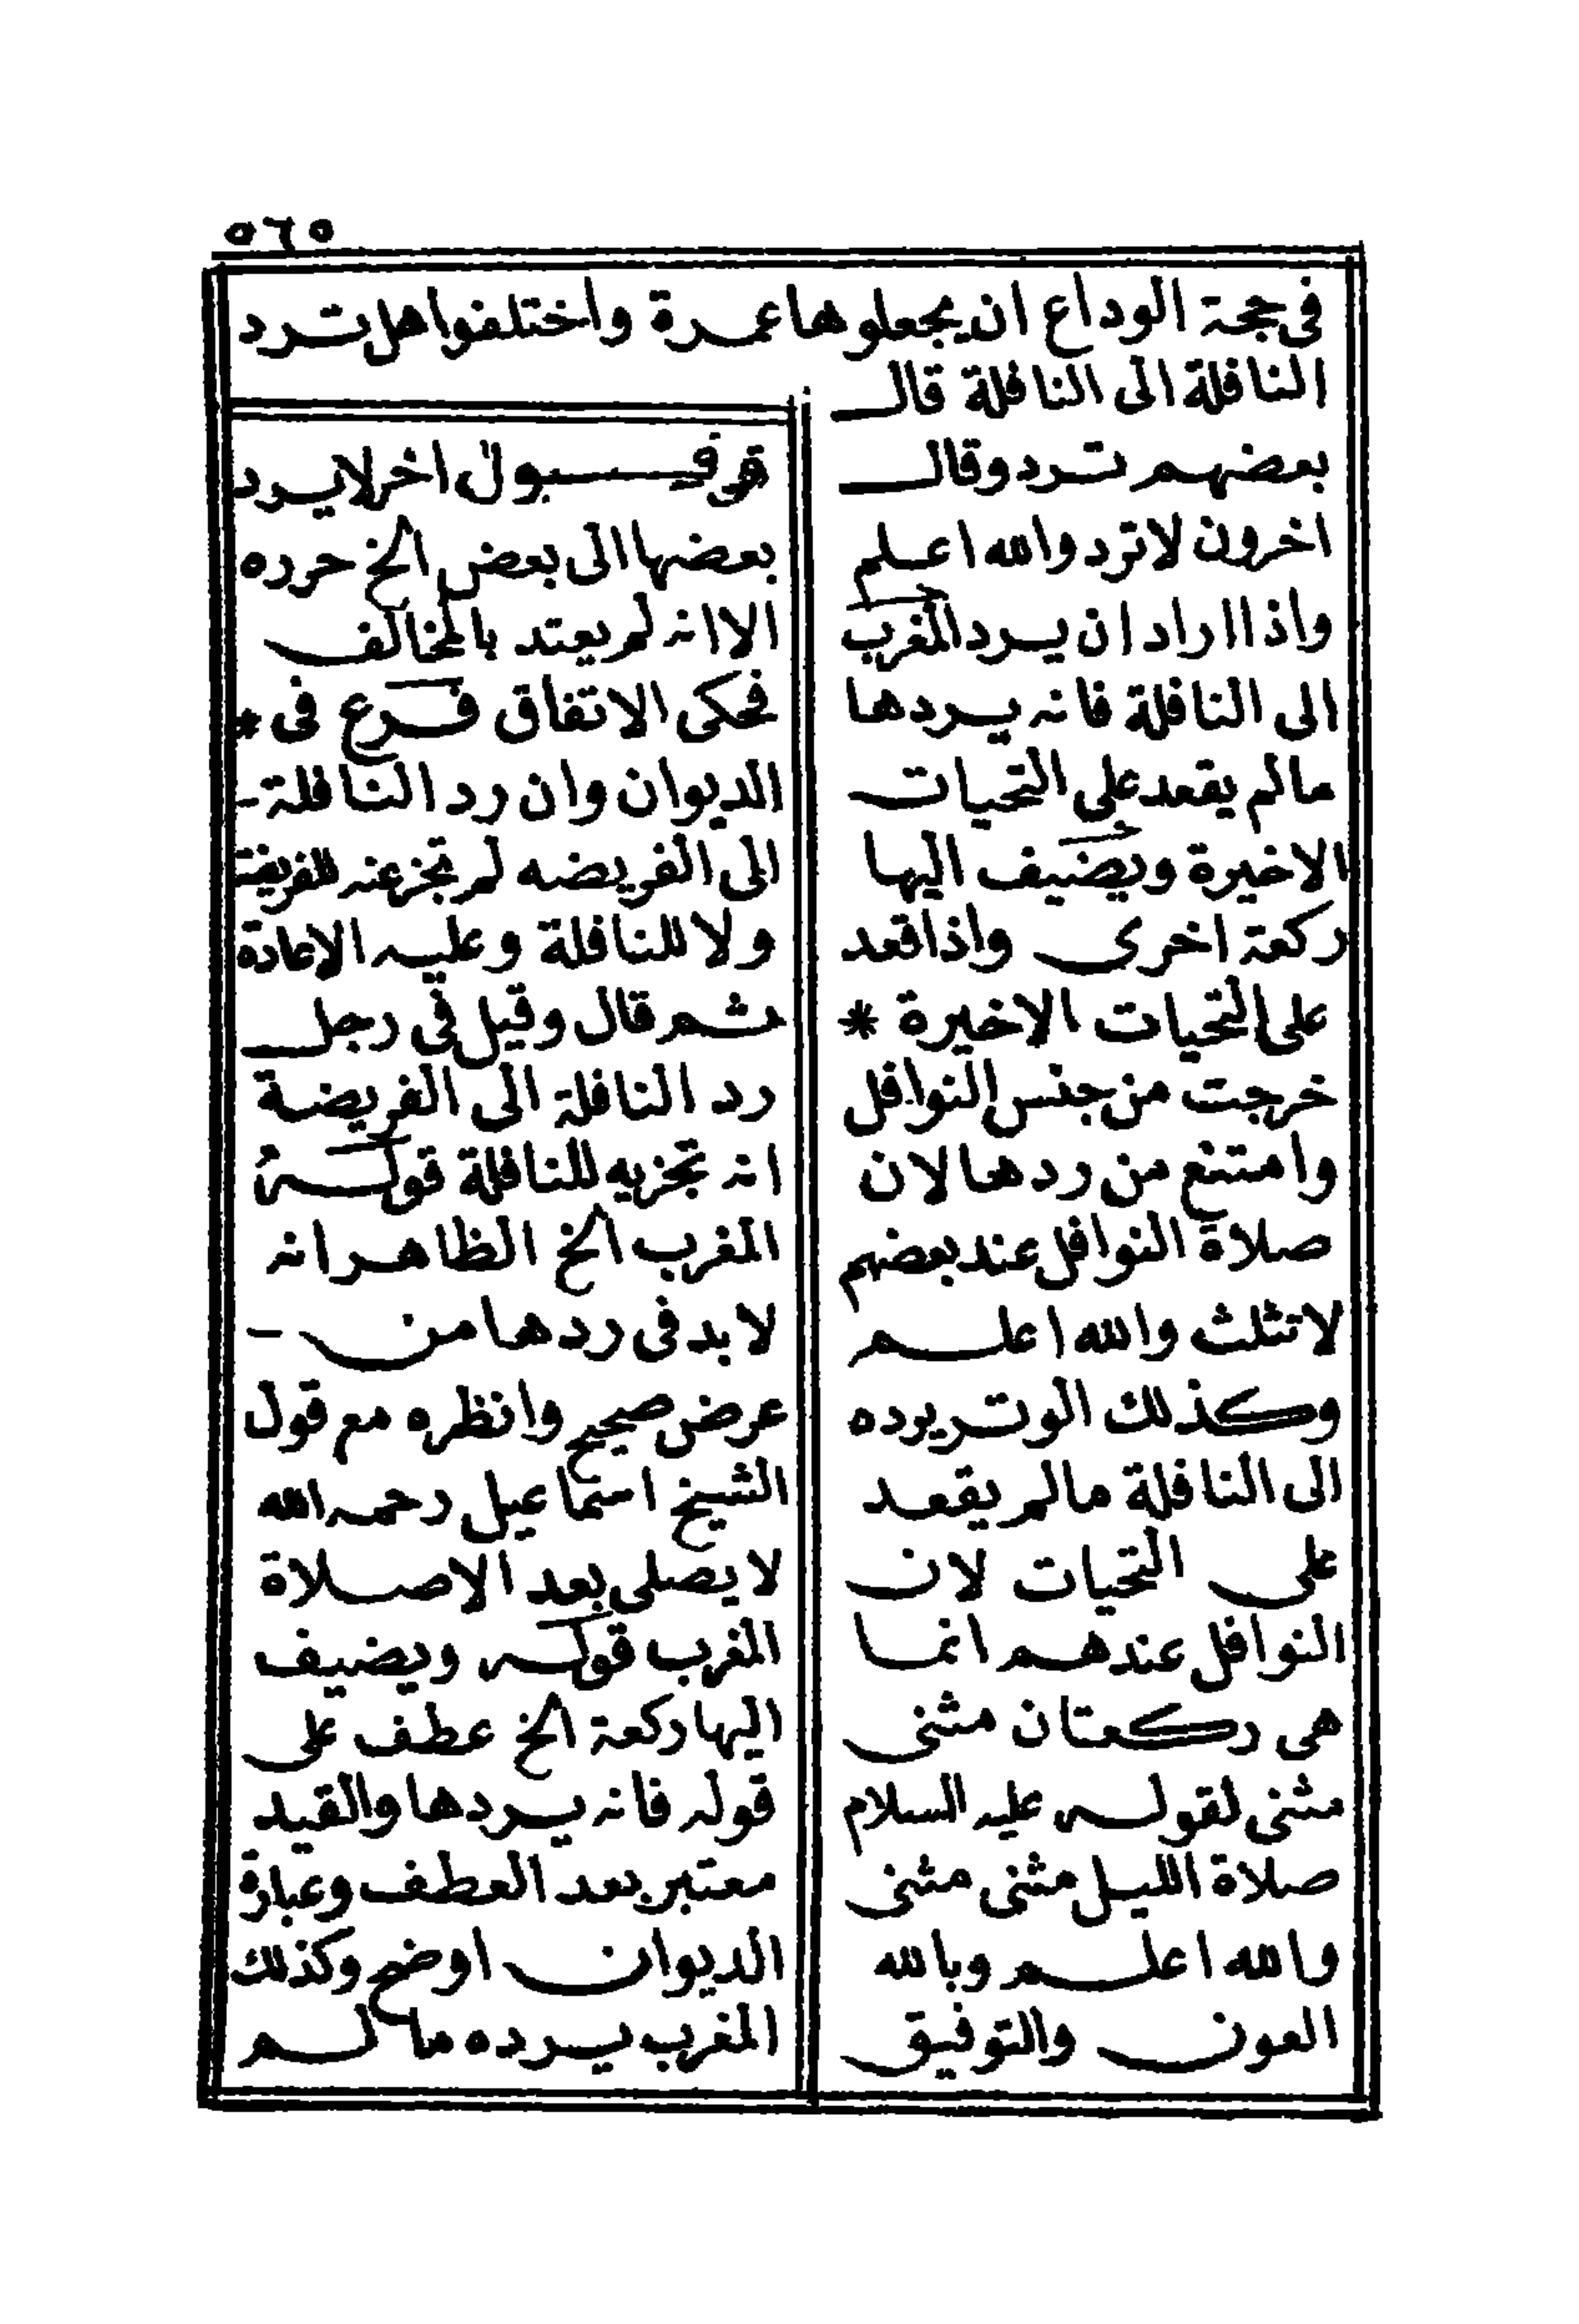 ٥٦٥
في حجة الوداع ان يجعلوها عمرة واختلفوا هل ترد
النافلة الى النافلة قال
بعضهم ترد وقال
اخرون لا ترد والله اعلم
واذا اراد ان يرد المغرب
الى النافلة فانه يردها
ما لم يقعد على التحيات
الاخيرة ويضيف اليها
ركعة اخرى واذا قعد
على التحيات الاخيرة *
خرجت من جنس النوافل
وامتنع من ردها لان
صلاة النوافل عند بعضهم
لا تثلث والله اعلم
وكذلك الوتر يرده
الى النافلة ما لم يقعد
على التحيات لان
النوافل عندهم انما
هي ركعتان مثنى
مثنى لقوله عليه السلام
صلاة الليل مثنى مثنى
والله اعلم وبالله
العون والتوفيق
اخر لا يرد
بعضها الى بعض الخ حرره
الا انه لم يعتد بالمخالف
فحكى الاتفاق فرع في *
الديوان وان رد النافلة -
الى الفريضه لم تجز عنه للفريضة
ولا للنافلة وعليه الاعادة
ثم قال وقيل في رجل
رد النافلة الى الفريضة
انه تجزيه للنافلة قوله
المغرب الخ الظاهر انه
لا بد في ردها من -
عرض صحيح وانظره مع قول
الشيخ اسماعيل رحمه الله
لا يصلى بعد الا صلاة
المغرب قوله ويضيف
اليها ركعة الخ عطف على
قوله فانه يردها والقيد
معتبر بعد العطف وعبارة
الديوان اوضح وكذلك
المغرب يرده ما لم